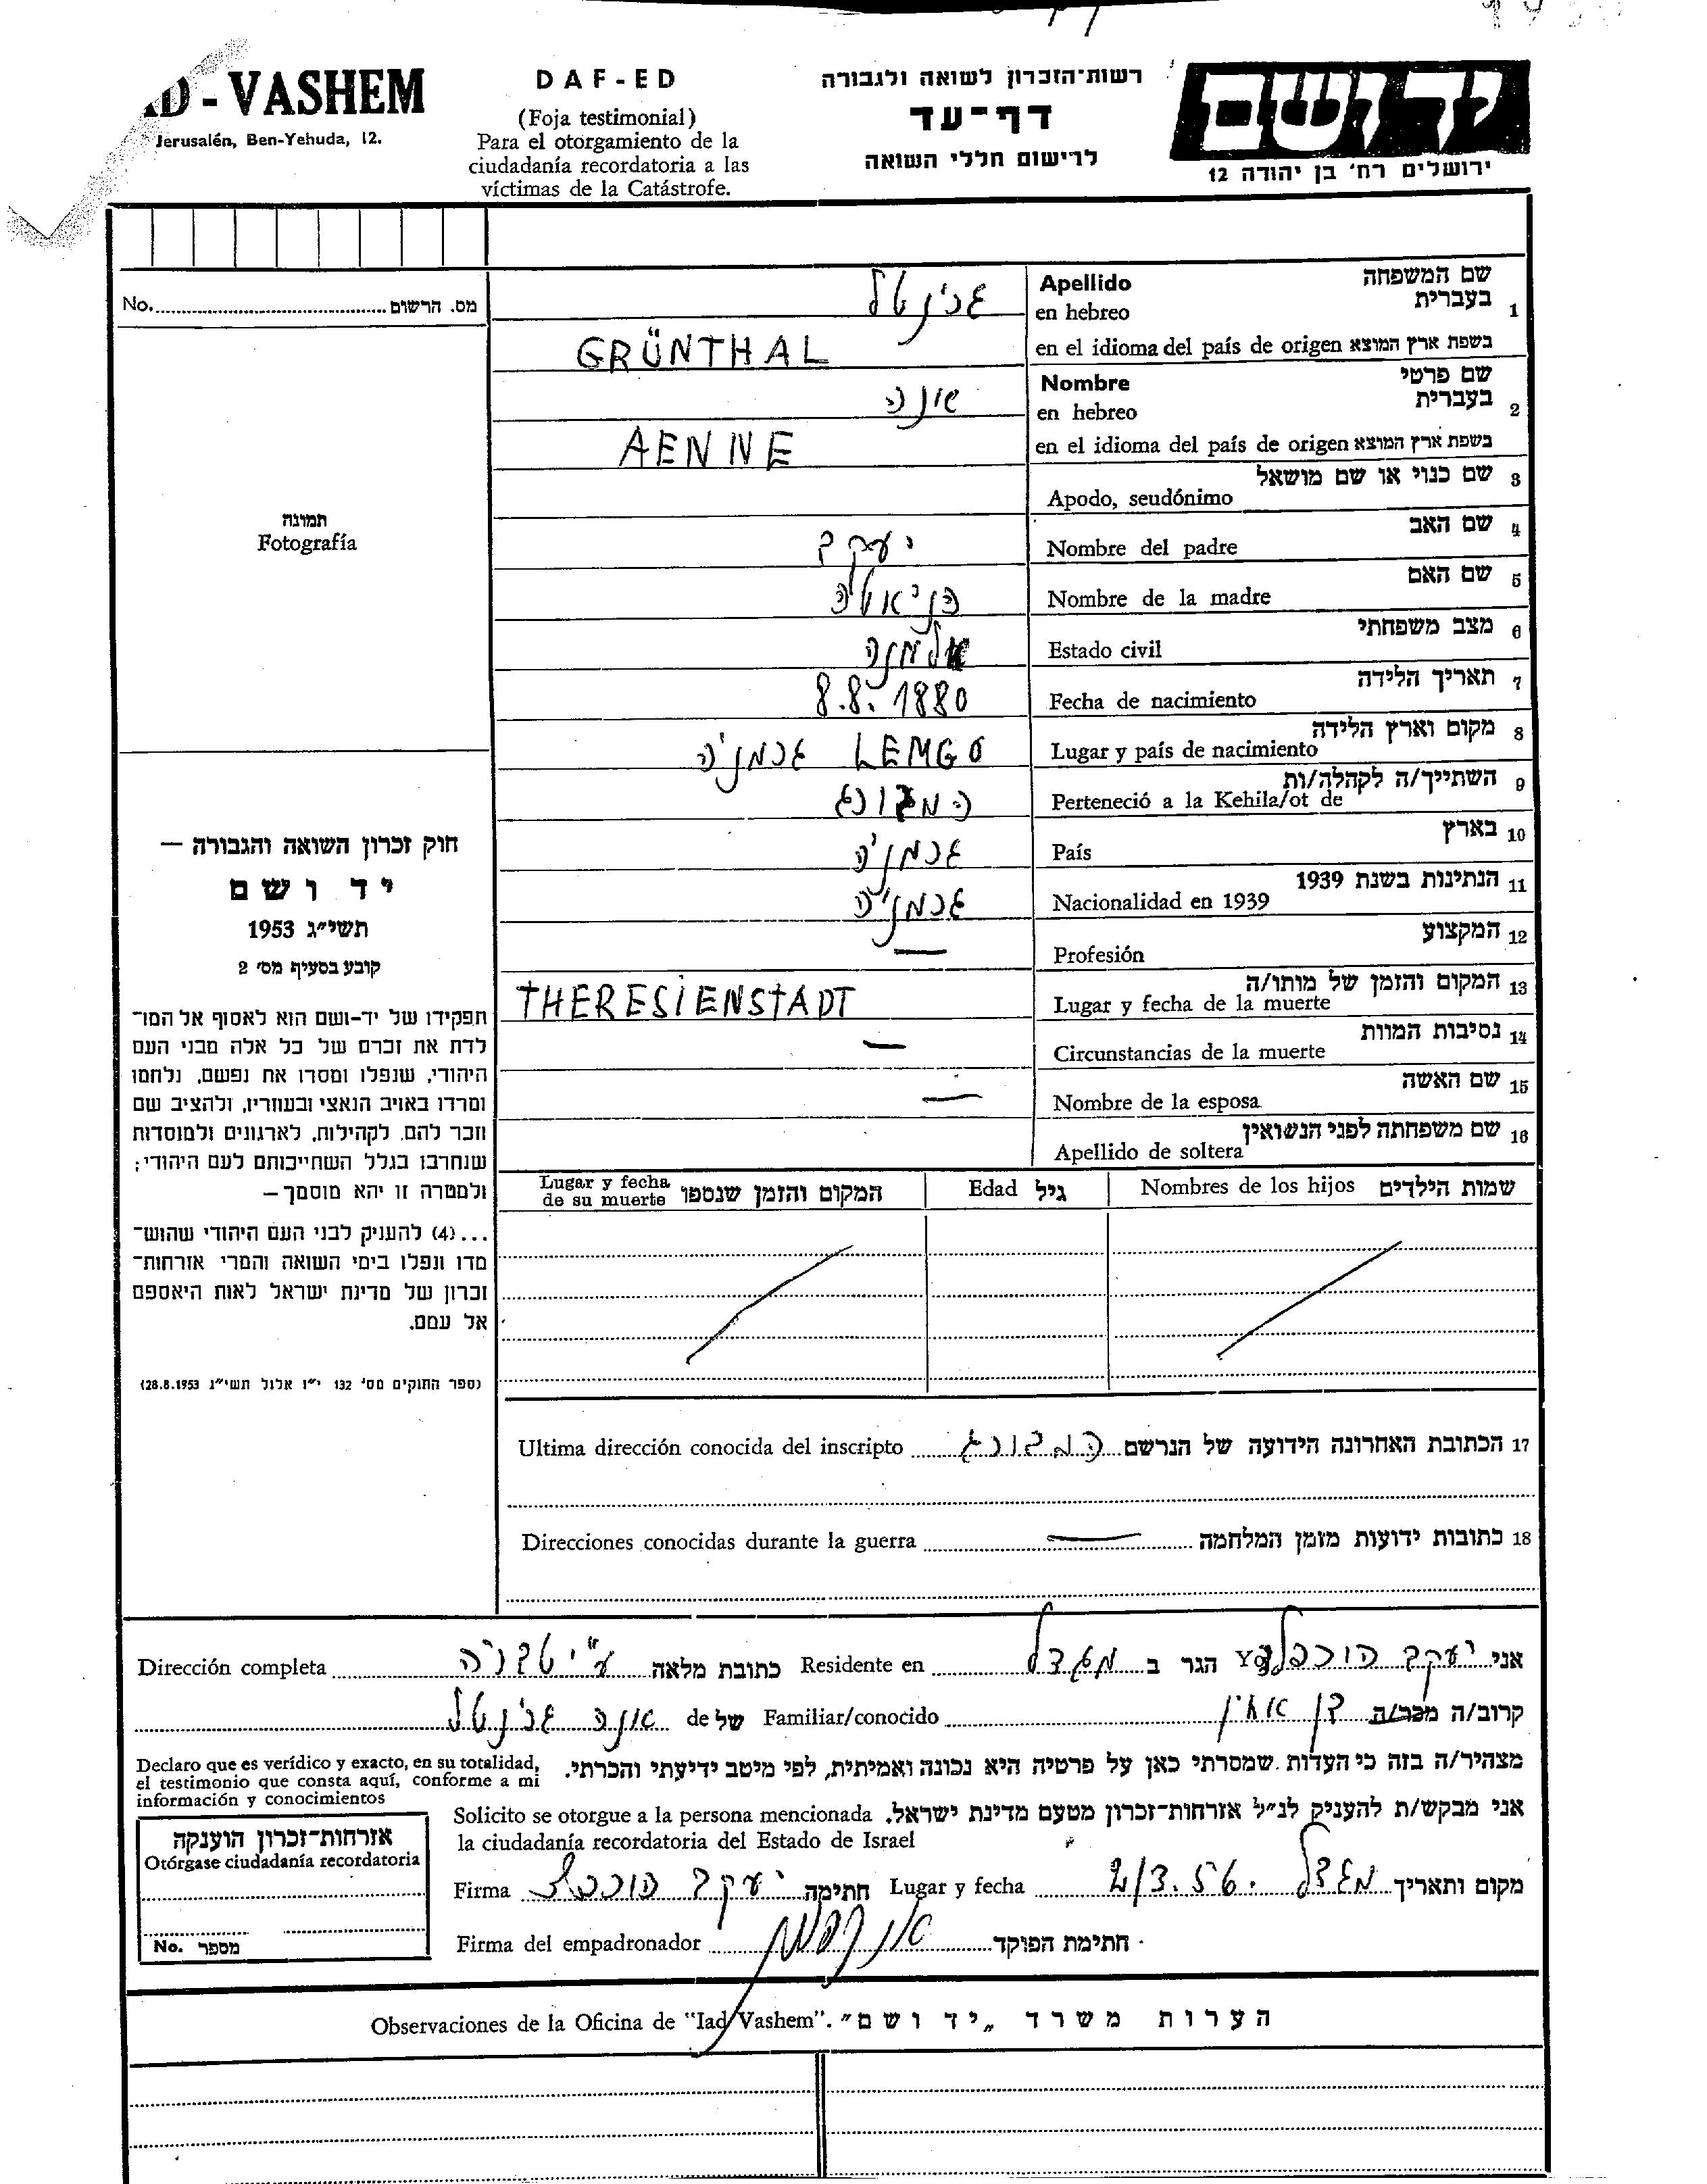 רשות־הזכרון לשואה ולגבורה
דף־עד
לרישום חללי השואה
ידושם
ירושלים רח' בן יהודה 12
DAF-ED
(Foja testimonial)
Para el otorgamiento de la
ciudadanía recordatoria a las
víctimas de la Catástrofe.
AD - VASHEM
Jerusalén, Ben-Yehuda, 12.
No. מס. הרשום
תמונה
Fotografía
1 שם המשפחה
בעברית
Apellido
en hebreo
גרינטל
בשפת ארץ המוצא en el idioma del país de origen
GRÜNTHAL
2 שם פרטי
בעברית
Nombre
en hebreo
אנה
בשפת ארץ המוצא en el idioma del país de origen
AENNE
3 שם כנוי או שם מושאל
Apodo, seudónimo
4 שם האב
Nombre del padre
יעקב
5 שם האם
Nombre de la madre
6 מצב משפחתי
Estado civil
אלמנה
7 תאריך הלידה
Fecha de nacimiento
8.8.1880
8 מקום וארץ הלידה
Lugar y país de nacimiento
LEMGO גרמניה
9 השתייך/ה לקהלה/ות
Perteneció a la Kehila/ot de
המבורג
10 בארץ
País
גרמניה
11 הנתינות בשנת 1939
Nacionalidad en 1939
גרמניה
12 המקצוע
Profesión
—
13 המקום והזמן של מותו/ה
Lugar y fecha de la muerte
THERESIENSTADT
14 נסיבות המוות
Circunstancias de la muerte
—
15 שם האשה
Nombre de la esposa
—
16 שם משפחתה לפני הנשואין
Apellido de soltera
שמות הילדים Nombres de los hijos
גיל Edad
המקום והזמן שנספו Lugar y fecha
de su muerte
חוק זכרון השואה והגבורה —
יד ושם
תשי"ג 1953
קובע בסעיף מס' 2
תפקידו של יד-ושם הוא לאסוף אל המו־
לדת את זכרם של כל אלה מבני העם
היהודי, שנפלו ומסרו את נפשם, נלחמו
ומרדו באויב הנאצי ובעוזריו, ולהציב שם
וזכר להם, לקהילות, לארגונים ולמוסדות
שנחרבו בגלל השתייכותם לעם היהודי;
ולמטרה זו יהא מוסמך —
...(4) להעניק לבני העם היהודי שהוש־
מדו ונפלו בימי השואה והמרי אזרחות־
זכרון של מדינת ישראל לאות היאספם
אל עמם.
(ספר החוקים מס' 132 י"ז אלול תשי"ג 28.8.1953)
17 הכתובת האחרונה הידועה של הנרשם המבורג Ultima dirección conocida del inscripto
18 כתובות ידועות מזמן המלחמה — Direcciones conocidas durante la guerra
אני יעקב Yo הגר ב מגדל Residente en כתובת מלאה ע"י טבריה Dirección completa
קרוב/ה מכר/ה בן אחין Familiar/conocido של de אנה גרינטל
מצהיר/ה בזה כי העדות שמסרתי כאן על פרטיה היא נכונה ואמיתית, לפי מיטב ידיעתי והכרתי.
Declaro que es verídico y exacto, en su totalidad,
el testimonio que consta aquí, conforme a mi
información y conocimientos
אני מבקש/ת להעניק לנ"ל אזרחות־זכרון מטעם מדינת ישראל. Solicito se otorgue a la persona mencionada
la ciudadanía recordatoria del Estado de Israel
מקום ותאריך מגדל 2/3.56. Lugar y fecha חתימה יעקב Firma
חתימת הפוקד Firma del empadronador
אזרחות־זכרון הוענקה
Otórgase ciudadanía recordatoria
No. מספר
הערות משרד „יד ושם". Observaciones de la Oficina de "Iad Vashem".